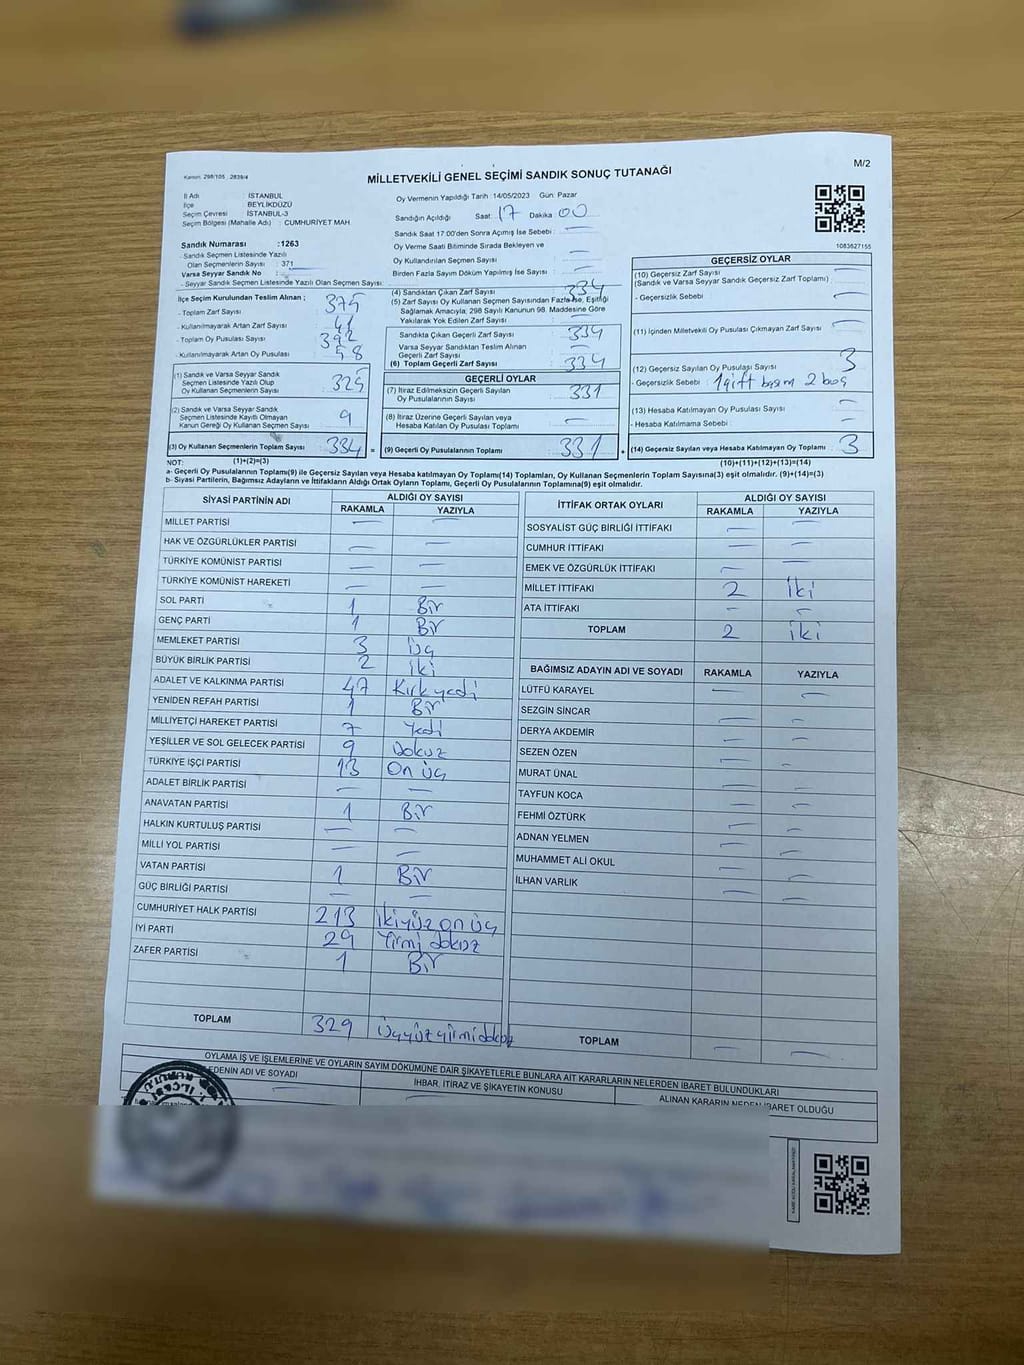 Kanun: 298/105, 2839/4
M/2
MİLLETVEKİLİ GENEL SEÇİMİ SANDIK SONUÇ TUTANAĞI
İl Adı : İSTANBUL
İlçe : BEYLİKDÜZÜ
Seçim Çevresi : İSTANBUL-3
Seçim Bölgesi (Mahalle Adı) : CUMHURİYET MAH.
Sandık Numarası :1263
- Sandık Seçmen Listesinde Yazılı
Olan Seçmenlerin Sayısı : 371
Varsa Seyyar Sandık No :
- Seyyar Sandık Seçmen Listesinde Yazılı Olan Seçmen Sayısı:
Oy Vermenin Yapıldığı Tarih :14/05/2023 Gün: Pazar
Sandığın Açıldığı Saat: 17 Dakika 00
Sandık Saat 17:00'den Sonra Açılmış İse Sebebi :
Oy Verme Saati Bitiminde Sırada Bekleyen ve
Oy Kullandırılan Seçmen Sayısı :
Birden Fazla Sayım Döküm Yapılmış İse Sayısı :
1083627155
İlçe Seçim Kurulundan Teslim Alınan ;
- Toplam Zarf Sayısı : 375
- Kullanılmayarak Artan Zarf Sayısı : 41
- Toplam Oy Pusulası Sayısı : 392
- Kullanılmayarak Artan Oy Pusulası : 58
(1) Sandık ve Varsa Seyyar Sandık
Seçmen Listesinde Yazılı Olup
Oy Kullanan Seçmenlerin Sayısı : 325
(2) Sandık ve Varsa Seyyar Sandık
Seçmen Listesinde Kayıtlı Olmayan
Kanun Gereği Oy Kullanan Seçmen Sayısı : 9
(3) Oy Kullanan Seçmenlerin Toplam Sayısı : 334 =
(1)+(2)=(3)
(4) Sandıktan Çıkan Zarf Sayısı : 334
(5) Zarf Sayısı Oy Kullanan Seçmen Sayısından Fazla ise, Eşitliği
Sağlamak Amacıyla; 298 Sayılı Kanunun 98. Maddesine Göre
Yakılarak Yok Edilen Zarf Sayısı :
Sandıkta Çıkan Geçerli Zarf Sayısı : 334
Varsa Seyyar Sandıktan Teslim Alınan
Geçerli Zarf Sayısı :
(6) Toplam Geçerli Zarf Sayısı : 334
GEÇERLİ OYLAR
(7) İtiraz Edilmeksizin Geçerli Sayılan
Oy Pusulalarının Sayısı : 331
(8) İtiraz Üzerine Geçerli Sayılan veya
Hesaba Katılan Oy Pusulası Toplamı :
(9) Geçerli Oy Pusulalarının Toplamı : 331 +
GEÇERSİZ OYLAR
(10) Geçersiz Zarf Sayısı
(Sandık ve Varsa Seyyar Sandık Geçersiz Zarf Toplamı) :
- Geçersizlik Sebebi :
(11) İçinden Milletvekili Oy Pusulası Çıkmayan Zarf Sayısı :
(12) Geçersiz Sayılan Oy Pusulası Sayısı : 3
- Geçersizlik Sebebi : 1 çift basım 2 boş
(13) Hesaba Katılmayan Oy Pusulası Sayısı :
- Hesaba Katılmama Sebebi :
(14) Geçersiz Sayılan veya Hesaba Katılmayan Oy Toplamı : 3
(10)+(11)+(12)+(13)=(14)
NOT:
a- Geçerli Oy Pusulalarının Toplamı(9) ile Geçersiz Sayılan veya Hesaba katılmayan Oy Toplamı(14) Toplamları, Oy Kullanan Seçmenlerin Toplam Sayısına(3) eşit olmalıdır. (9)+(14)=(3)
b- Siyasi Partilerin, Bağımsız Adayların ve İttifakların Aldığı Ortak Oyların Toplamı, Geçerli Oy Pusulalarının Toplamına(9) eşit olmalıdır.
SİYASİ PARTİNİN ADI ALDIĞI OY SAYISI
RAKAMLA YAZIYLA
MİLLET PARTİSİ
HAK VE ÖZGÜRLÜKLER PARTİSİ
TÜRKİYE KOMÜNİST PARTİSİ
TÜRKİYE KOMÜNİST HAREKETİ
SOL PARTİ 1 Bir
GENÇ PARTİ 1 Bir
MEMLEKET PARTİSİ 3 üç
BÜYÜK BİRLİK PARTİSİ 2 iki
ADALET VE KALKINMA PARTİSİ 47 Kırkyedi
YENİDEN REFAH PARTİSİ 1 Bir
MİLLİYETÇİ HAREKET PARTİSİ 7 Yedi
YEŞİLLER VE SOL GELECEK PARTİSİ 9 Dokuz
TÜRKİYE İŞÇİ PARTİSİ 13 On üç
ADALET BİRLİK PARTİSİ
ANAVATAN PARTİSİ 1 Bir
HALKIN KURTULUŞ PARTİSİ
MİLLİ YOL PARTİSİ
VATAN PARTİSİ 1 Bir
GÜÇ BİRLİĞİ PARTİSİ
CUMHURİYET HALK PARTİSİ 213 ikiyüz on üç
İYİ PARTİ 29 Yirmi dokuz
ZAFER PARTİSİ 1 Bir
TOPLAM 329 üçyüz yirmi dokuz
İTTİFAK ORTAK OYLARI ALDIĞI OY SAYISI
RAKAMLA YAZIYLA
SOSYALİST GÜÇ BİRLİĞİ İTTİFAKI
CUMHUR İTTİFAKI
EMEK VE ÖZGÜRLÜK İTTİFAKI
MİLLET İTTİFAKI 2 iki
ATA İTTİFAKI
TOPLAM 2 iki
BAĞIMSIZ ADAYIN ADI VE SOYADI RAKAMLA YAZIYLA
LÜTFÜ KARAYEL
SEZGİN SİNCAR
DERYA AKDEMİR
SEZEN ÖZEN
MURAT ÜNAL
TAYFUN KOCA
FEHMİ ÖZTÜRK
ADNAN YELMEN
MUHAMMET ALİ OKUL
İLHAN VARLIK
TOPLAM
OYLAMA İŞ VE İŞLEMLERİNE VE OYLARIN SAYIM DÖKÜMÜNE DAİR ŞİKAYETLERLE BUNLARA AİT KARARLARIN NELERDEN İBARET BULUNDUKLARI
EDENİN ADI VE SOYADI İHBAR, İTİRAZ VE ŞİKAYETİN KONUSU ALINAN KARARIN NEDEN İBARET OLDUĞU